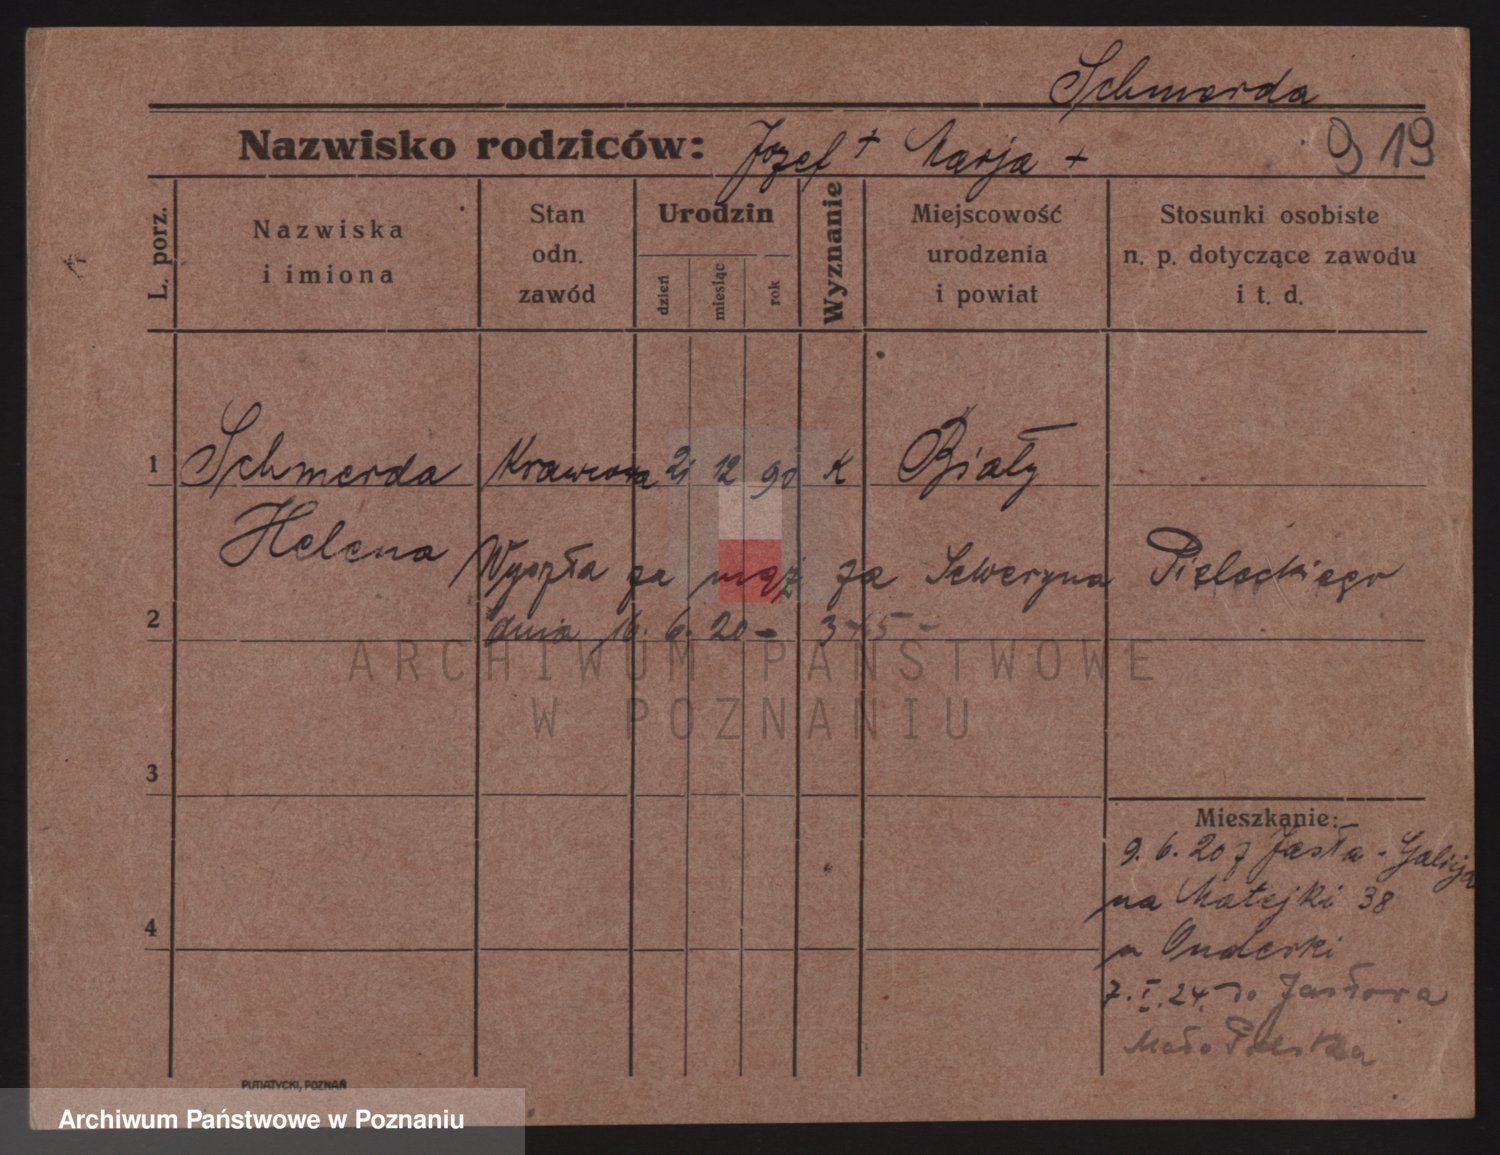 Schmerda
Nazwisko rodziców: Józef + Marja +
9 19
L. porz.
Nazwiska
i imiona
Stan
odn.
zawód
Urodzin
dzień
miesiąc
rok
Wyznanie
Miejscowość
urodzenia
i powiat
Stosunki osobiste
n. p. dotyczące zawodu
i t. d.
1 Schmerda Krawcowa 21 12 90 K Biały
Helena
Wyszła za mąż za Seweryna Pieleckiego
2 dnia 16. 6. 20 - 3475 -
ARCHIWUM PAŃSTWOWE
W POZNANIU
3
Mieszkanie:
9. 6. 20 z Jasła - Galicja
na Matejki 38
u Onderki
4
7. I. 24. do Jastowa
Mało Polska
PUTIATYCKI, POZNAŃ
Archiwum Państwowe w Poznaniu